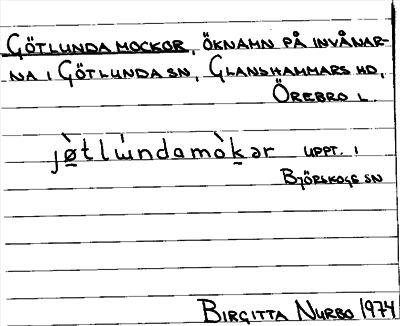 GÖTLUNDAMOCKOR, ÖKNAMN PÅ INVÅNAR-
NA I GÖTLUNDA SN, GLANSHAMMARS HD,
ÖREBRO L.
jø̀tlɯ́ndamòkər UPPT. I
BJÖRSKOGS SN
BIRGITTA NURBO 1974